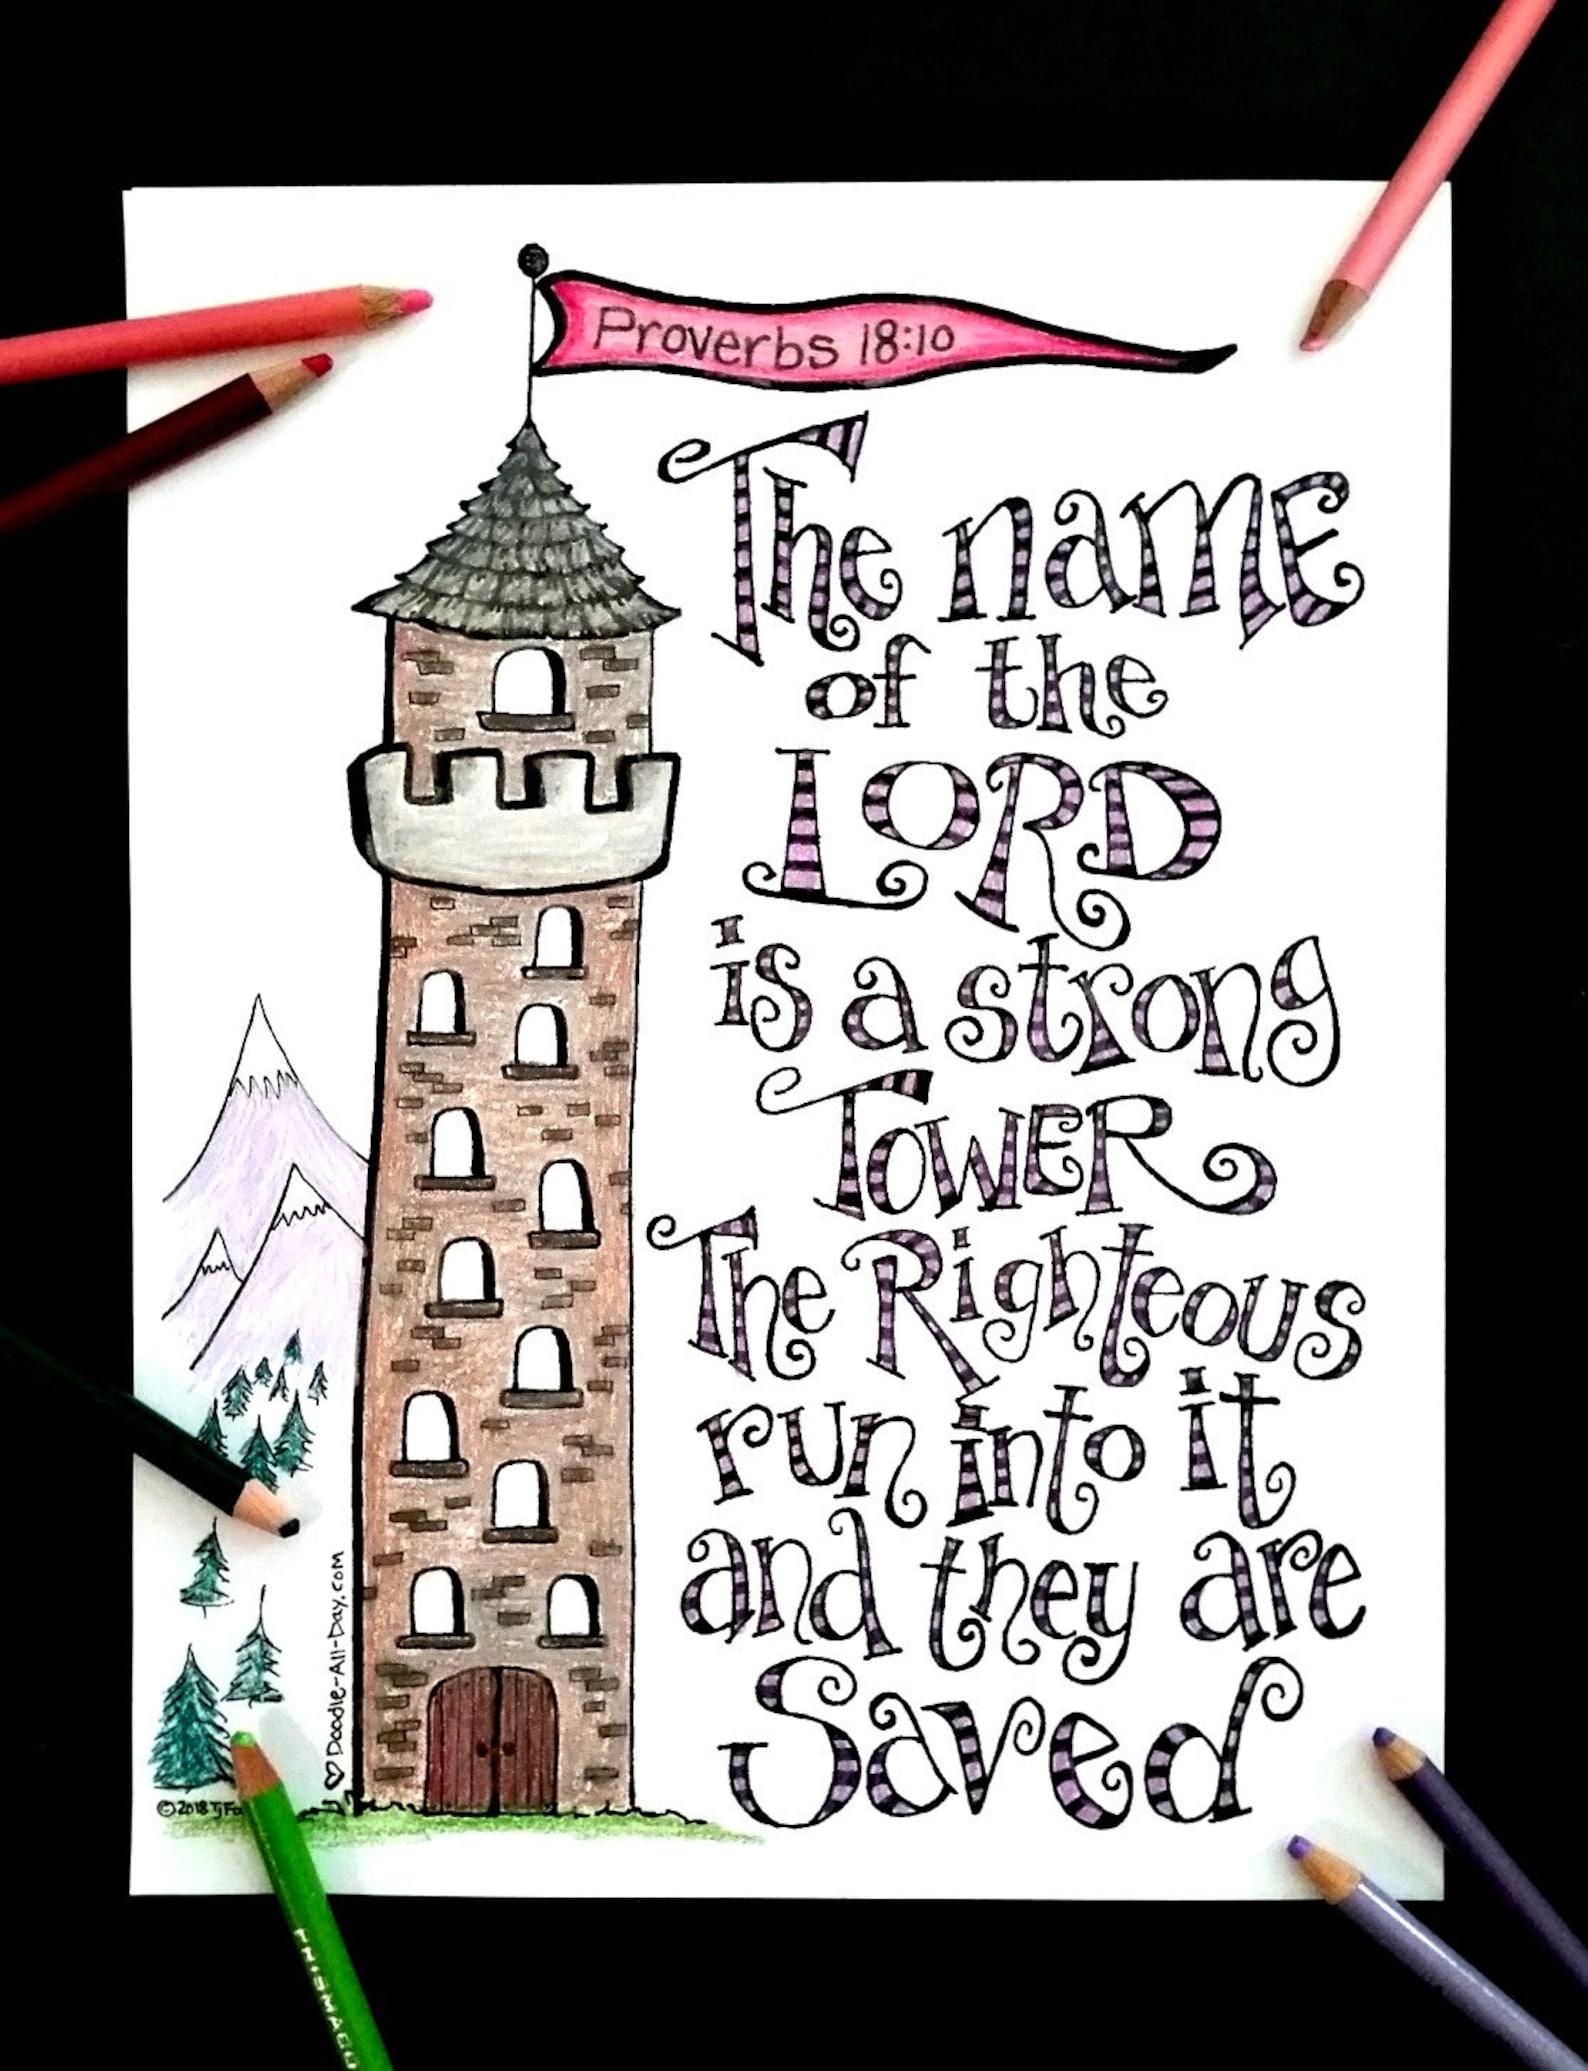 Proverbs 18:10
The name
of the
LORD
is a strong
TOWER
The Righteous
run into it
and they are
Saved
Doodle-All-Day.com
©2018 TJ